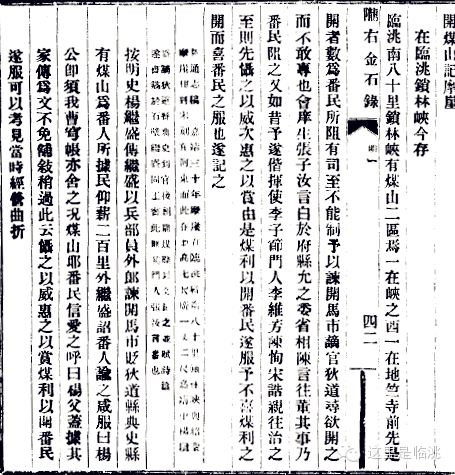 開煤山記摩崖
在臨洮鎖林峽今存
臨洮南八十里鎖林峽有煤山二區焉一在峽之西一在地竺寺前先是
隴右金石錄
明
四二
開者數爲番民所阻有司至不能制予以諫開馬市謫官狄道尋欲開之
而不敢專也會庠生張子汝言白於府縣允之委省相陳言往董其事乃
番民阻之又如昔予遂偕揮使李子節門人李維芳陳恂宋誥親往治之
至則先懾之以威次惠之以賞由是煤利以開番民遂服予不喜煤利之
開而喜番民之服也遂記之
按明史楊繼盛傳繼盛以兵部員外郎諫開馬市貶狄道縣典史縣
有煤山爲番人所據民仰薪二百里外繼盛詔番人諭之咸服曰楊
公卽須我曹穹帳亦舍之况煤山耶番民信愛之呼曰楊父蓋據其
家傳爲文不免鋪敍稍過此云懾之以威惠之以賞煤利以開番民
遂服可以考見當時經營曲折
这里是临洮